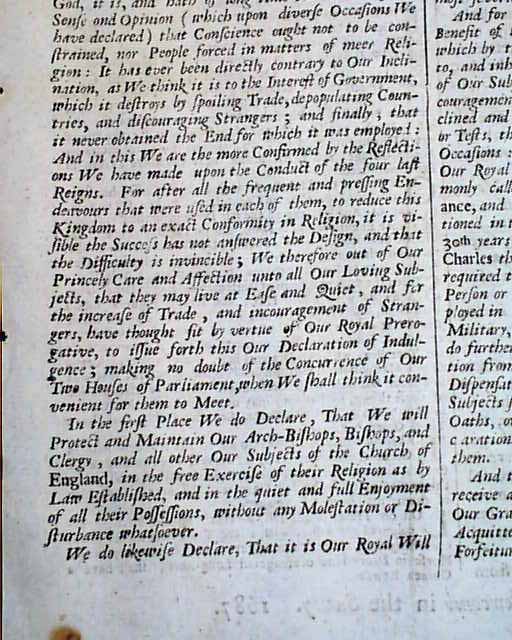 God, it is, and hath of long
Sense and Opinion ( which upon diverse Occasions We
have declared ) that Conscience ought not to be con-
strained, nor People forced in matters of meer Reli-
gion: It has ever been directly contrary to Our Incli-
nation, as We think it is to the Interest of Government,
which it destroys by spoiling Trade, depopulating Coun-
tries, and discouraging Strangers ; and finally, that
it never obtained the End for which it was employed :
And in this We are the more Confirmed by the Reflecti-
ons We have made upon the Conduct of the four last
Reigns. For after all the frequent and pressing En-
deavours that were used in each of them, to reduce this
Kingdom to an exact Conformity in Religion, it is vi-
sible the Success has not answered the Design, and that
the Difficulty is invincible ; We therefore out of Our
Princely Care and Affection unto all Our Loving Sub-
jects, that they may live at Ease and Quiet, and for
the increase of Trade , and incouragement of Stran-
gers, have thought fit by vertue of Our Royal Prero-
gative, to issue forth this Our Declaration of Indul-
gence ; making no doubt of the Concurrence of Our
Two Houses of Parliament, when We shall think it con-
venient for them to Meet.
In the first Place We do Declare, That We will
Protect and Maintain Our Arch-Bishops, Bishops, and
Clergy , and all other Our Subjects of the Church of
England, in the free Exercise of their Religion as by
Law Established, and in the quiet and full Enjoyment
of all their Possessions, without any Molestation or Di-
sturbance whatsoever.
We do likewise Declare, That it is Our Royal Will
And for
Benefit of
which by
to, and inh
of Our Sub
couragemen
clined and
or Tests, th
Occasions :
Our Royal
monly calle
ance, and
tioned in
30th years
Charles th
required
Person or
ployed in
Military,
do further
tion from
Dispensat
Subjects
Oaths, o
claration
them.
And
receive
Our Gra
Acquitte
Forfeitur
1687.